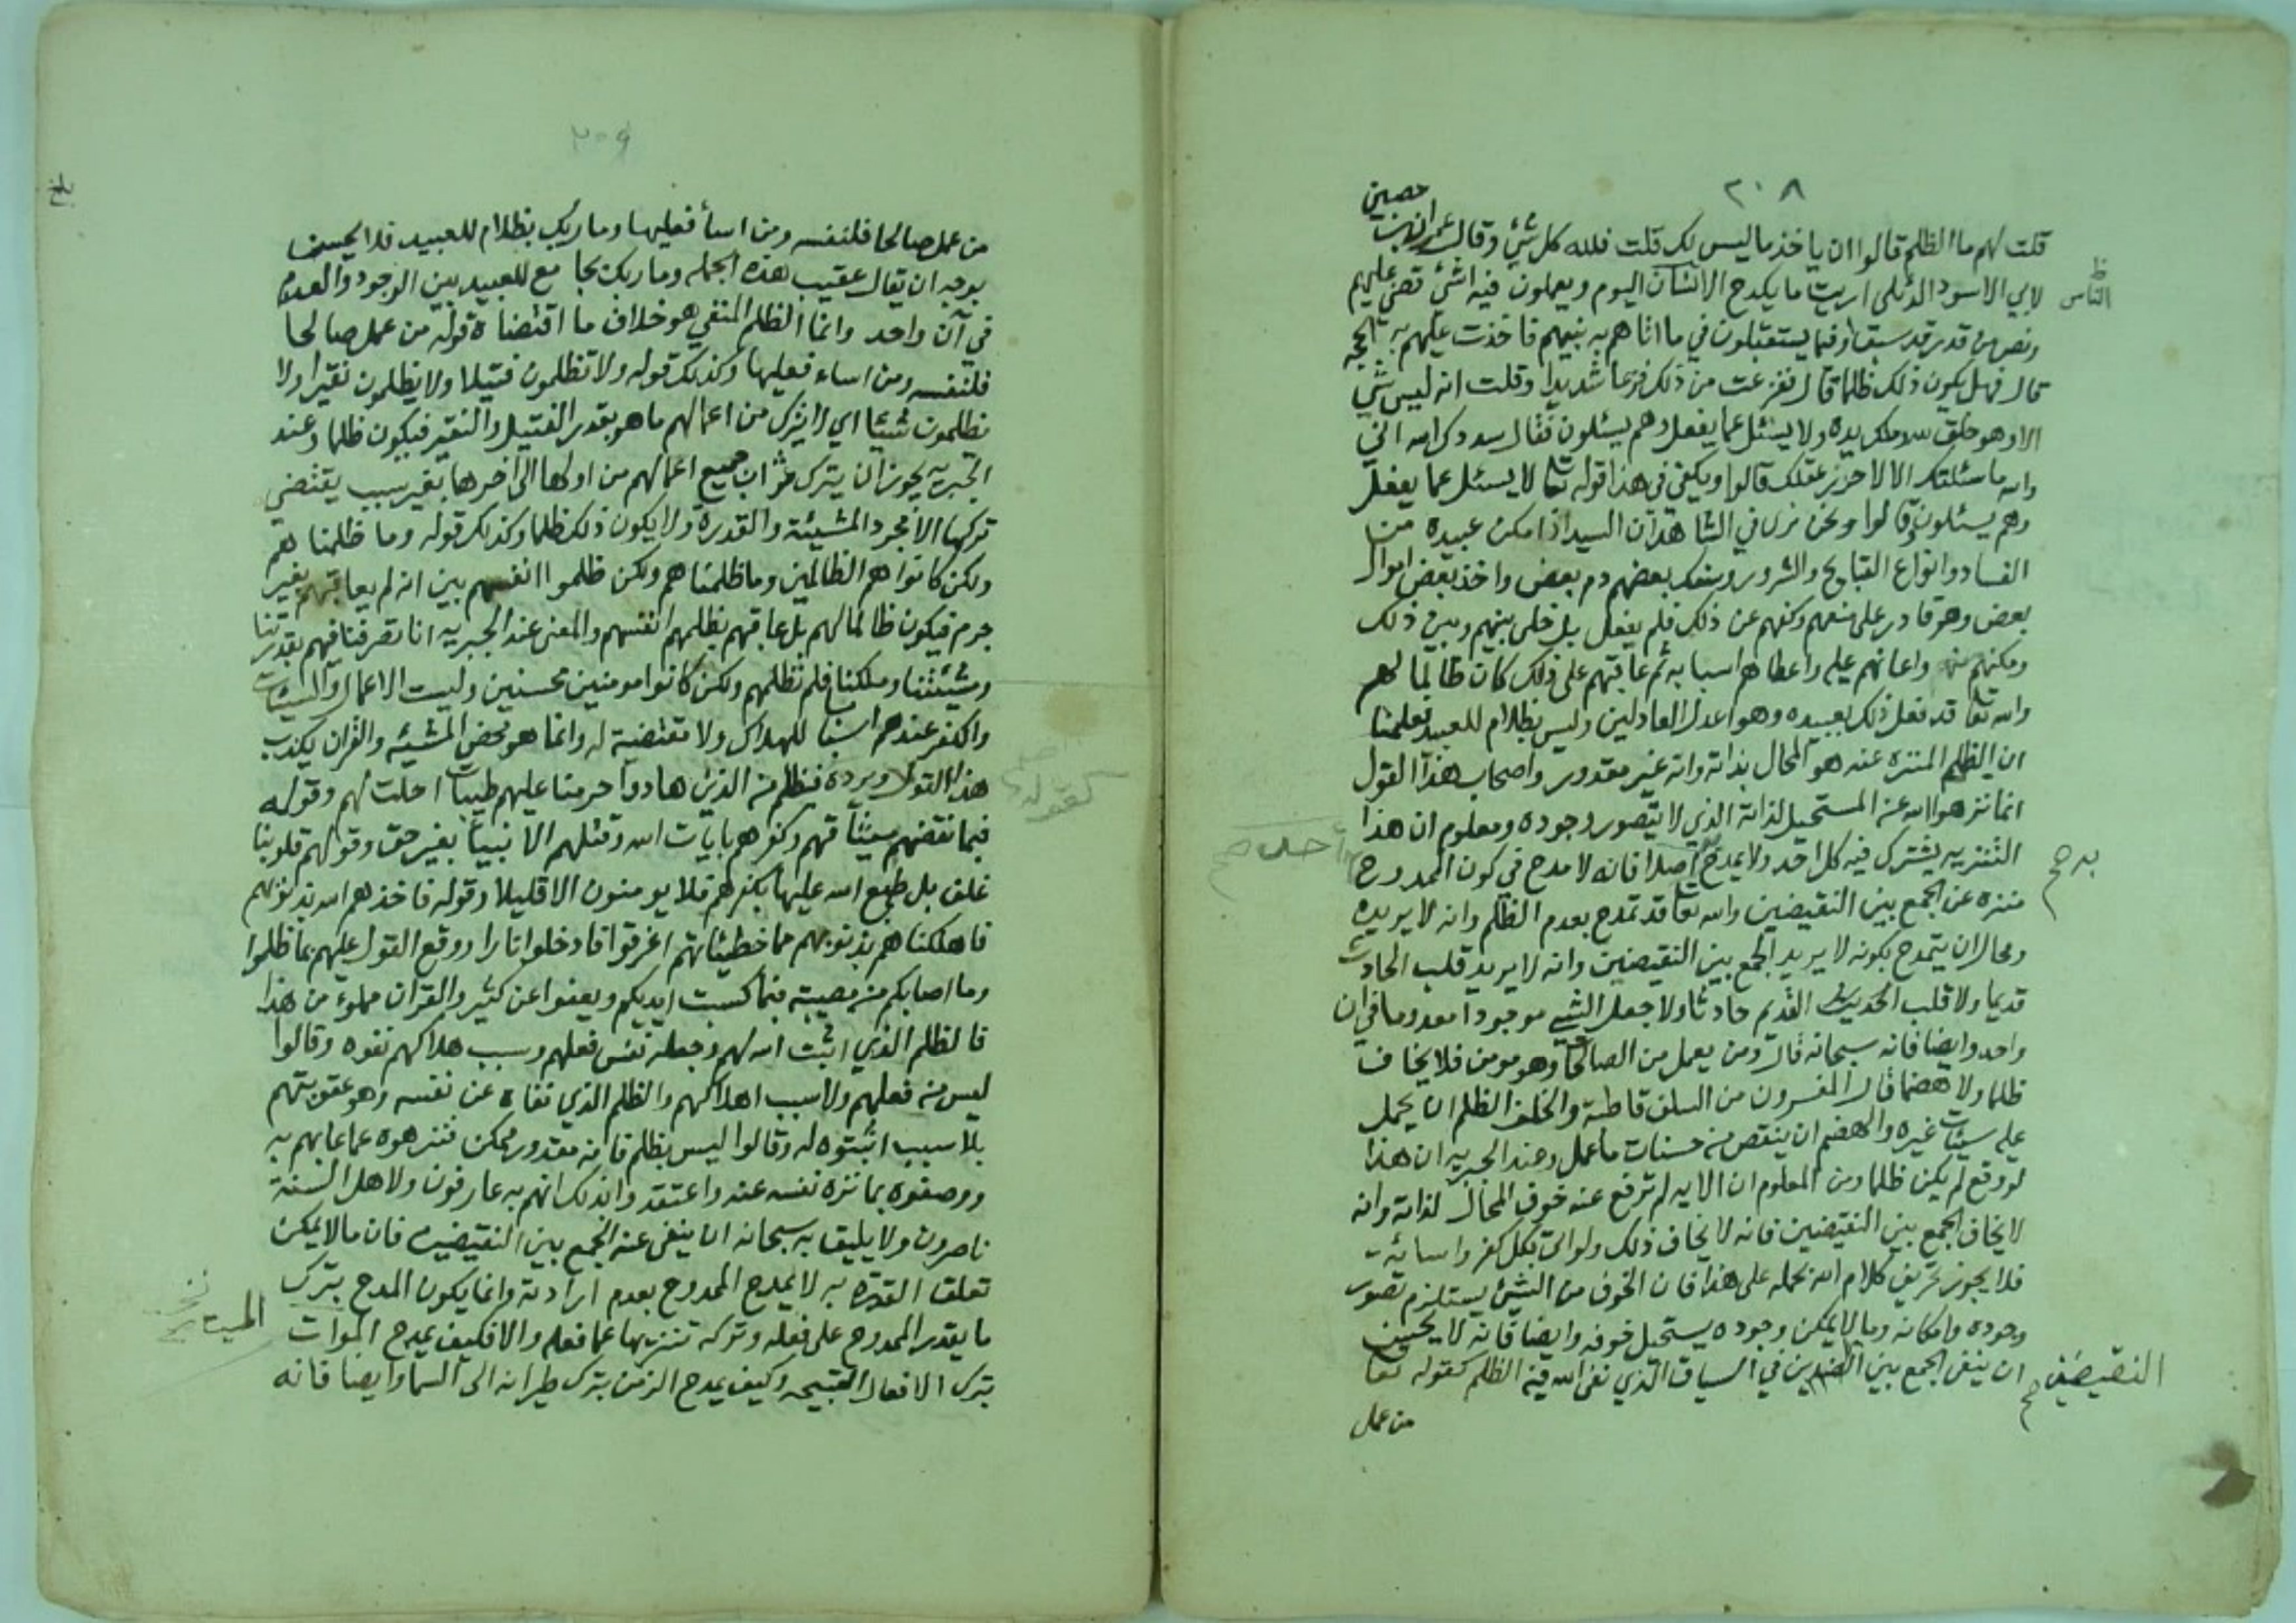 ٢٠٨
قلت لهم ما الظلم قالوا ان ياخذ ما ليس لك قلت فلله كل شئ وقال عمران بن
حصين
لابي الاسود الدئلى اريت ما يكدح الانسان اليوم ويعملون فيه اشئ قضى عليهم
ظ
الناس
ومن قدر قد سبق او فيما يستقبلون في ما اتاهم به نبيهم فاخذت عليهم به الحجه
قال فهل يكون ذلك ظلما قال ففزعت من ذلك فزعا شديدا وقلت انه ليس شئ
الا وهو خلق الله وملك يده ولا يسئل عما يفعل وهم يسئلون فقال سددك الله اني
والله ما سئلتك الا لاحزر عقلك قالوا ويكفى فى هذا قوله تعا لا يسئل عما يفعل
وهم يسئلون وقالوا ونحن نرى في الشاهد ان السيد اذا مكن عبيده من
الفساد وانواع القبايح والشرور وسفك بعضهم دم بعض واخذ بعض اموال
بعض وهو قادر على منعهم وكفهم عن ذلك فلم يفعل بل خلى بينهم وبين ذلك
ومكنهم منه واعانهم عليه واعطاهم اسبابه ثم عاقبهم على ذلك كان ظالما لهم
والله تعا قد فعل ذلك بعبيده وهو اعدل العادلين وليس بظلام للعبيد فعلمنا
ان الظلم المنزه عنه هو المحال بذاته وانه غير مقدور واصحاب هذا القول
انما نزهوا الله عن المستحيل لذاته الذي لا يتصور وجوده ومعلوم ان هذا
التنزيه يشترك فيه كل احد ولا يمدح اصلا فانه لا مدح في كون الممدوح
به صح
منزه عن الجمع بين النقيضين والله تعا قد تمدح بعدم الظلم وانه لا يريده
ومحال ان يتمدح بكونه لا يريد الجمع بين النقيضين وانه لا يريد قلب الحادث
قديما ولا قلب القديم حادثا ولا جعل الشئ موجودا معدوما في ان
واحد وايضا فانه سبحانه قال ومن يعمل من الصالحات وهو مومن فلا يخاف
ظلما ولا هضما قال المفسرون من السلف قاطبة والخلف الظلم ان يحمل
عليه سيئات غيره والهضم ان ينقص من حسنات ما عمل وعند الجبريه ان هذا
لو وقع لم يكن ظلما ومن المعلوم ان الايه لم ترفع عنه خوف المحال لذاته وانه
لا يخاف الجمع بين النقيضين فانه لا يخاف ذلك ولو اتى بكل كفر واسائة
فلا يجوز تحريف كلام الله بحمله على هذا فان الخوف من الشئ يستلزم تصور
وجوده وامكانه وما لا يمكن وجوده يستحيل خوفه وايضا فانه لا يحسن
ان ينفى الجمع بين الضدين في السياق الذي نفى الله فيه الظلم كقوله تعا
النقيضين صح
من عمل
٢٠٩
من عمل صالحا فلنفسه ومن اسأ فعليها وما ربك بظلام للعبيد فلا يحسن
بوجه ان يقال عقيب هذه الجمله وما ربك بجامع للعبيد بين الوجود والعدم
في آن واحد وانما الظلم المنفي هو خلاف ما اقتضاه قوله من عمل صالحا
فلنفسه ومن اساء فعليها وكذلك قوله ولا تظلمون فتيلا ولا يظلمون نقيرا ولا
تظلمون شيئا اي لا يترك من اعمالهم ما هو بقدر الفتيل والنقير فيكون ظلما وعند
الجبريه يجوز ان يترك ثواب جميع اعمالهم من اولها الى اخرها بغير سبب يقتضي
تركها الا مجرد المشيئة والقدرة ولا يكون ذلك ظلما وكذلك قوله وما ظلمناهم
ولكن كانوا هم الظالمين وما ظلمناهم ولكن ظلموا انفسهم بين انه لم يعاقبهم بغير
جرم فيكون ظالما لهم بل عاقبهم بظلمهم انفسهم والمعنى عند الجبريه انا تصرفنا فيهم بقدرتنا
ومشيئتنا وملكنا فلم نظلمهم ولكن كانوا مومنين محسنين وليست الاعمال والسيئات
والكفر عندهم اسبابا للهلاك ولا مقتضية له وانما هو محض المشيئه والقران يكذب
هذا القول ويرده فبظلم من الذين هادوا حرمنا عليهم طيبات احلت لهم وقوله
كقوله
فبما نقضهم ميثاقهم وكفرهم بايآت الله وقتلهم الانبيأ بغير حق وقولهم قلوبنا
غلف بل طبع الله عليها بكفرهم فلا يومنون الا قليلا وقوله فاخذهم الله بذنوبهم
فاهلكناهم بذنوبهم مما خطيئاتهم اغرقوا فادخلوا نارا ووقع القول عليهم بما ظلموا
وما اصابكم من مصيبة فبما كسبت ايديكم ويعفوا عن كثير والقران مملوء من هذا
فالظلم الذي اثبت الله لهم وجعله نفس فعلهم وسبب هلاكهم نفوه وقالوا
ليس من فعلهم ولا سبب اهلاكهم والظلم الذي نفاه عن نفسه وهو عقوبتهم
بلا سبب اثبتوه له وقالوا ليس بظلم فانه مقدور ممكن فنزهوه عما عابهم به
ووصفوه بما نزه نفسه عنه واعتقدوا بذلك انهم به عارفون ولاهل السنة
ناصرون ولا يليق به سبحانه ان ينفى عنه الجمع بين النقيضين فان ما لا يمكن
تعلق القدرة به لا يمدح الممدوح بعدم ارادته وانما يكون المدح بترك
ما يقدر الممدوح على فعله وتركه تنزيها عما فعله والا فكيف يمدح الموات
الميت
بترك الافعال القبيحه وكيف يمدح الزمن بترك طيرانه الى السما وايضا فانه